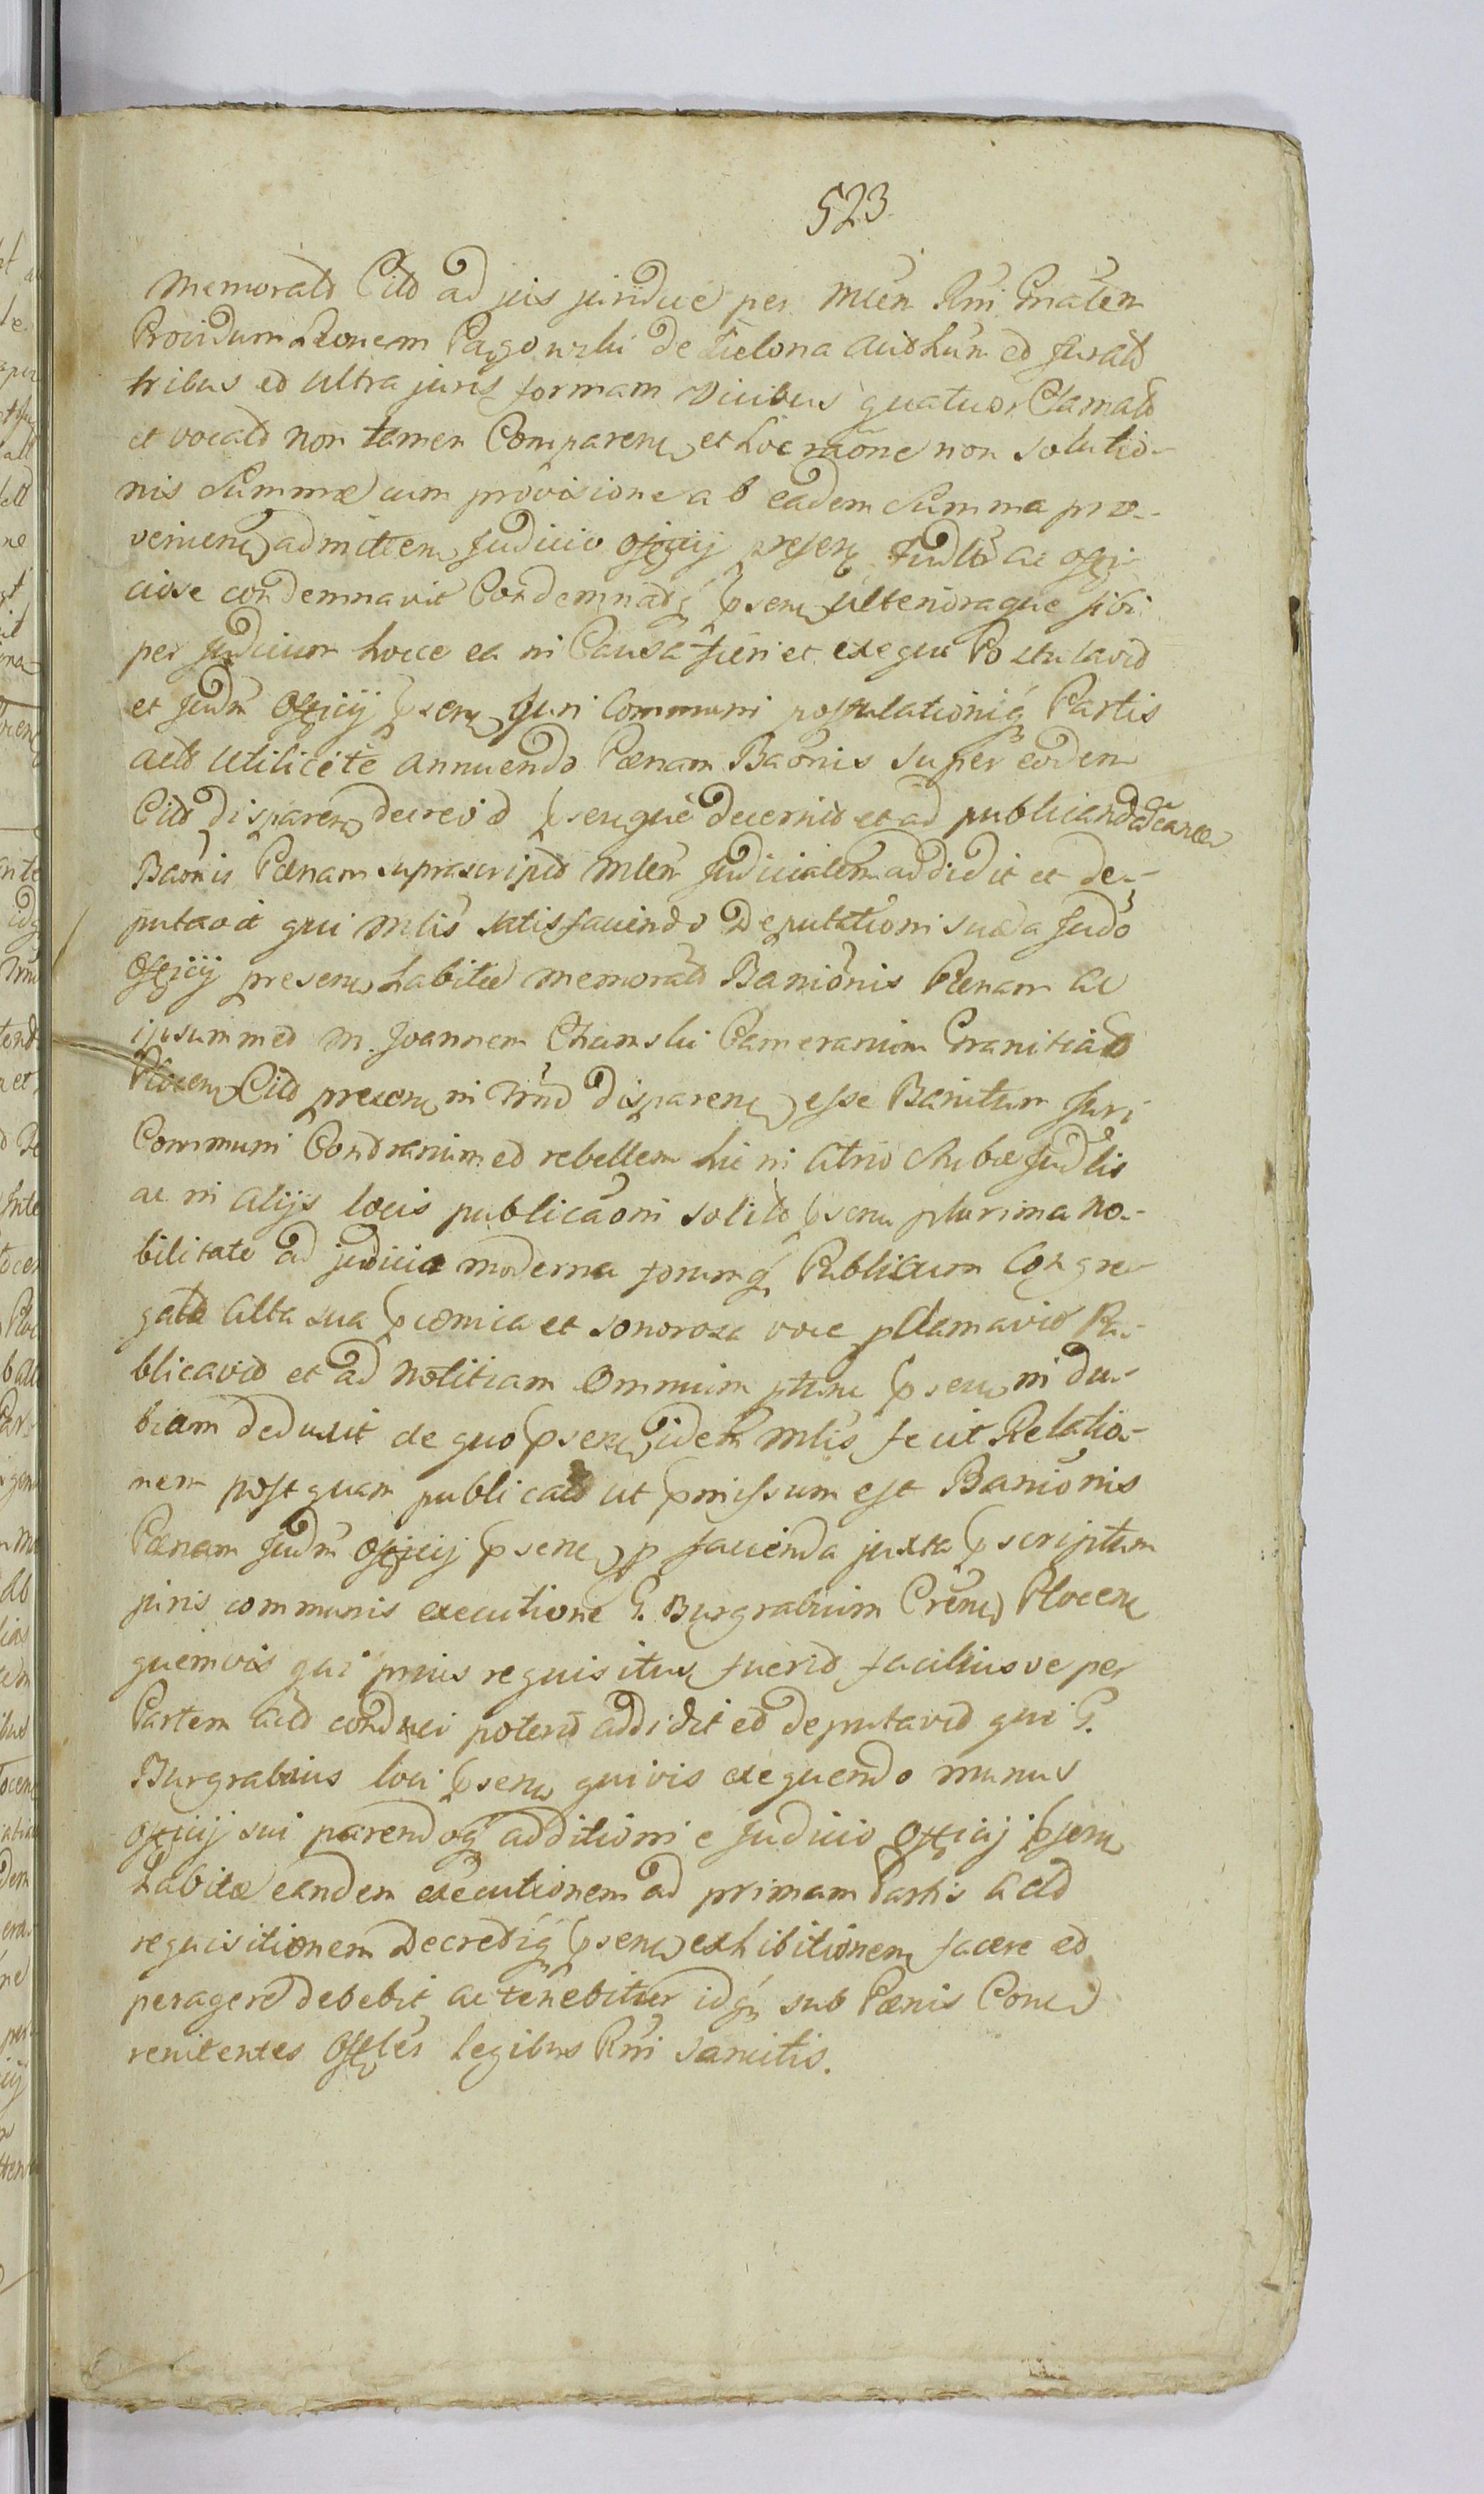 523
memorat Citt ad jus juridice per Mlem Rni Gnalem
Providum Leonem Pągowski de Zielona Authen et Jurat
tribus et ultra juris formam vicibus quatuor Clamatt
et vocatt non tamen Comparen et hoc raõne non solutio-
nis Summæ cum provisione ab eadem Summa pro-
venien admitten Judicio Officij presen Judlr ac offi-
ciose condemnavit Condemnatq psen ulterioraque sibi
per Judicium hocce ea in Causa fieri et exequi Postulavit
et Judm Officij psen Juri Communi postulationiq Partis
actt utilicite annuendo Pænam Baõnis super eodem
Citt disparen decrevit psenque decernit et ad publicandã eande
Baonis Pænam suprascript Mlem Judicialem addidit et de-
putavit qui Mlis satisfaciendo Deputationi suæ a Judo
Officij presen habitæ memorat Banionis Pænam ac
ipsummet M. Joannem Chamski Camerarium Granitiar
Plocen Citt presen in Trno disparen esse Banitum Juri
Communi Contrarium et rebellem hic in Atrio Stubæ Judlis
ac in alijs locis publicaõni solitt psen plurima no-
bilitate ad judicia moderna forumq Publicum Congre-
gata Alta sua pconica et sonorosa voce pclamavit Pu-
blicavit et ad notitiam omnium ptinen psen in du-
biam deduxit de quo psen idem Mlis fecit Relatio-
nem post quam publicatt ut pmissum est Banionis
Pænam Judm Officij psen p facienda juxta pscriptum
juris communis executione G. Burgrabium Crens Plocen
quemvis qui prius requisitus fuerit faciliusve per
Partem Actt conduci poterit addidit et deputavit qui G.
Burgrabius loci psen quivis exequendo munus
officij sui parendoq additioni e Judicio Officij psen
habitæ eandem executionem ad primam Partis Actt
requisitionem Decretiq psen exhibitionem facere et
peragere debebit ac tenebitur idq sub Pænis Contra
renitentes Offles legibus Rni sancitis.